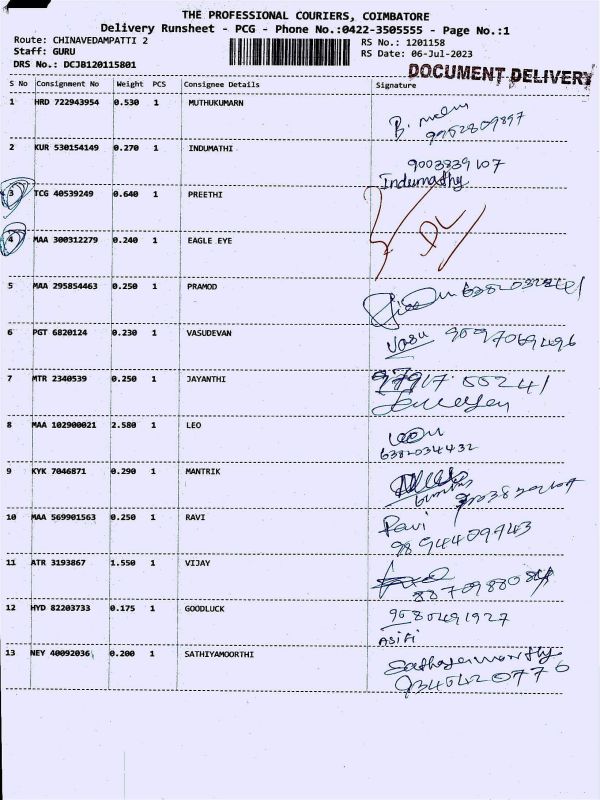 THE PROFESSIONAL COURIERS, COIMBATORE
Delivery Runsheet - PCG - Phone No.:0422-3505555 - Page No.:1
Route: CHINAVEDAMPATTI 2 RS No.: 1201158
Staff: GURU RS Date: 06-Jul-2023
DRS No.: DCJB120115801
DOCUMENT DELIVERY
S No Consignment No Weight PCS Consignee Details Signature
1 HRD 722943954 0.530 1 MUTHUKUMARN
2 KUR 530154149 0.270 1 INDUMATHI 9003339107
Indumathy
3 TCG 40539249 0.640 1 PREETHI
4 MAA 300312279 0.240 1 EAGLE EYE
5 MAA 295854463 0.250 1 PRAMOD
6 PGT 6820124 0.230 1 VASUDEVAN Vasu
7 MTR 2340539 0.250 1 JAYANTHI
8 MAA 102900021 2.580 1 LEO
6382034432
9 KYK 7046871 0.290 1 MANTRIK
10 MAA 569901563 0.250 1 RAVI Ravi
9894409943
11 ATR 3193867 1.550 1 VIJAY
12 HYD 82203733 0.175 1 GOODLUCK 9080491927
13 NEY 40092036 0.200 1 SATHIYAMOORTHI